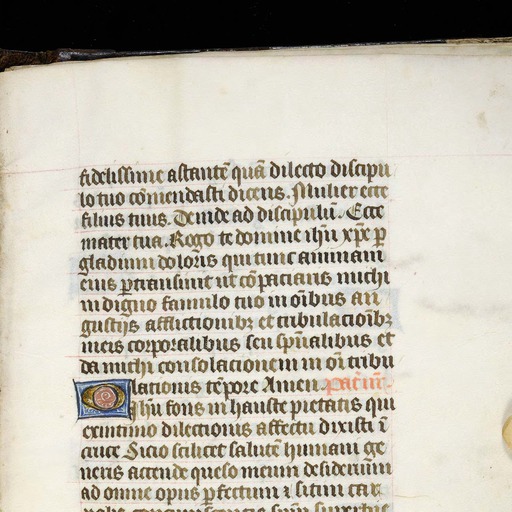 fidelissime astantē quā dilecto discipu
lo tuo cōmendasti dicens. Mulier ecce
filius tuus. Deinde ad discipulū. Ecce
mater tua. Rogo te domine ihū xp̄e p̱
gladium doloris qui tunc animam
eius p̱transiuit ut cōpaciaris michi
indigno famulo tuo in oībus an
gustijs afflictionibꝫ et tribulacioībꝫ
meis corporalibus seu spūalibus et
da michi consolacionem in oī tribu
lationis tēpore Amen. Pať nr̄.
O ihū fons inhauste pietatis qui
ex intimo dilectionis affectu dixisti ī
cruce Sicio scilicet salutē humani ge
neris accende queso meum desiderium
ad omne opus p̱fectum ⁊ sitim car